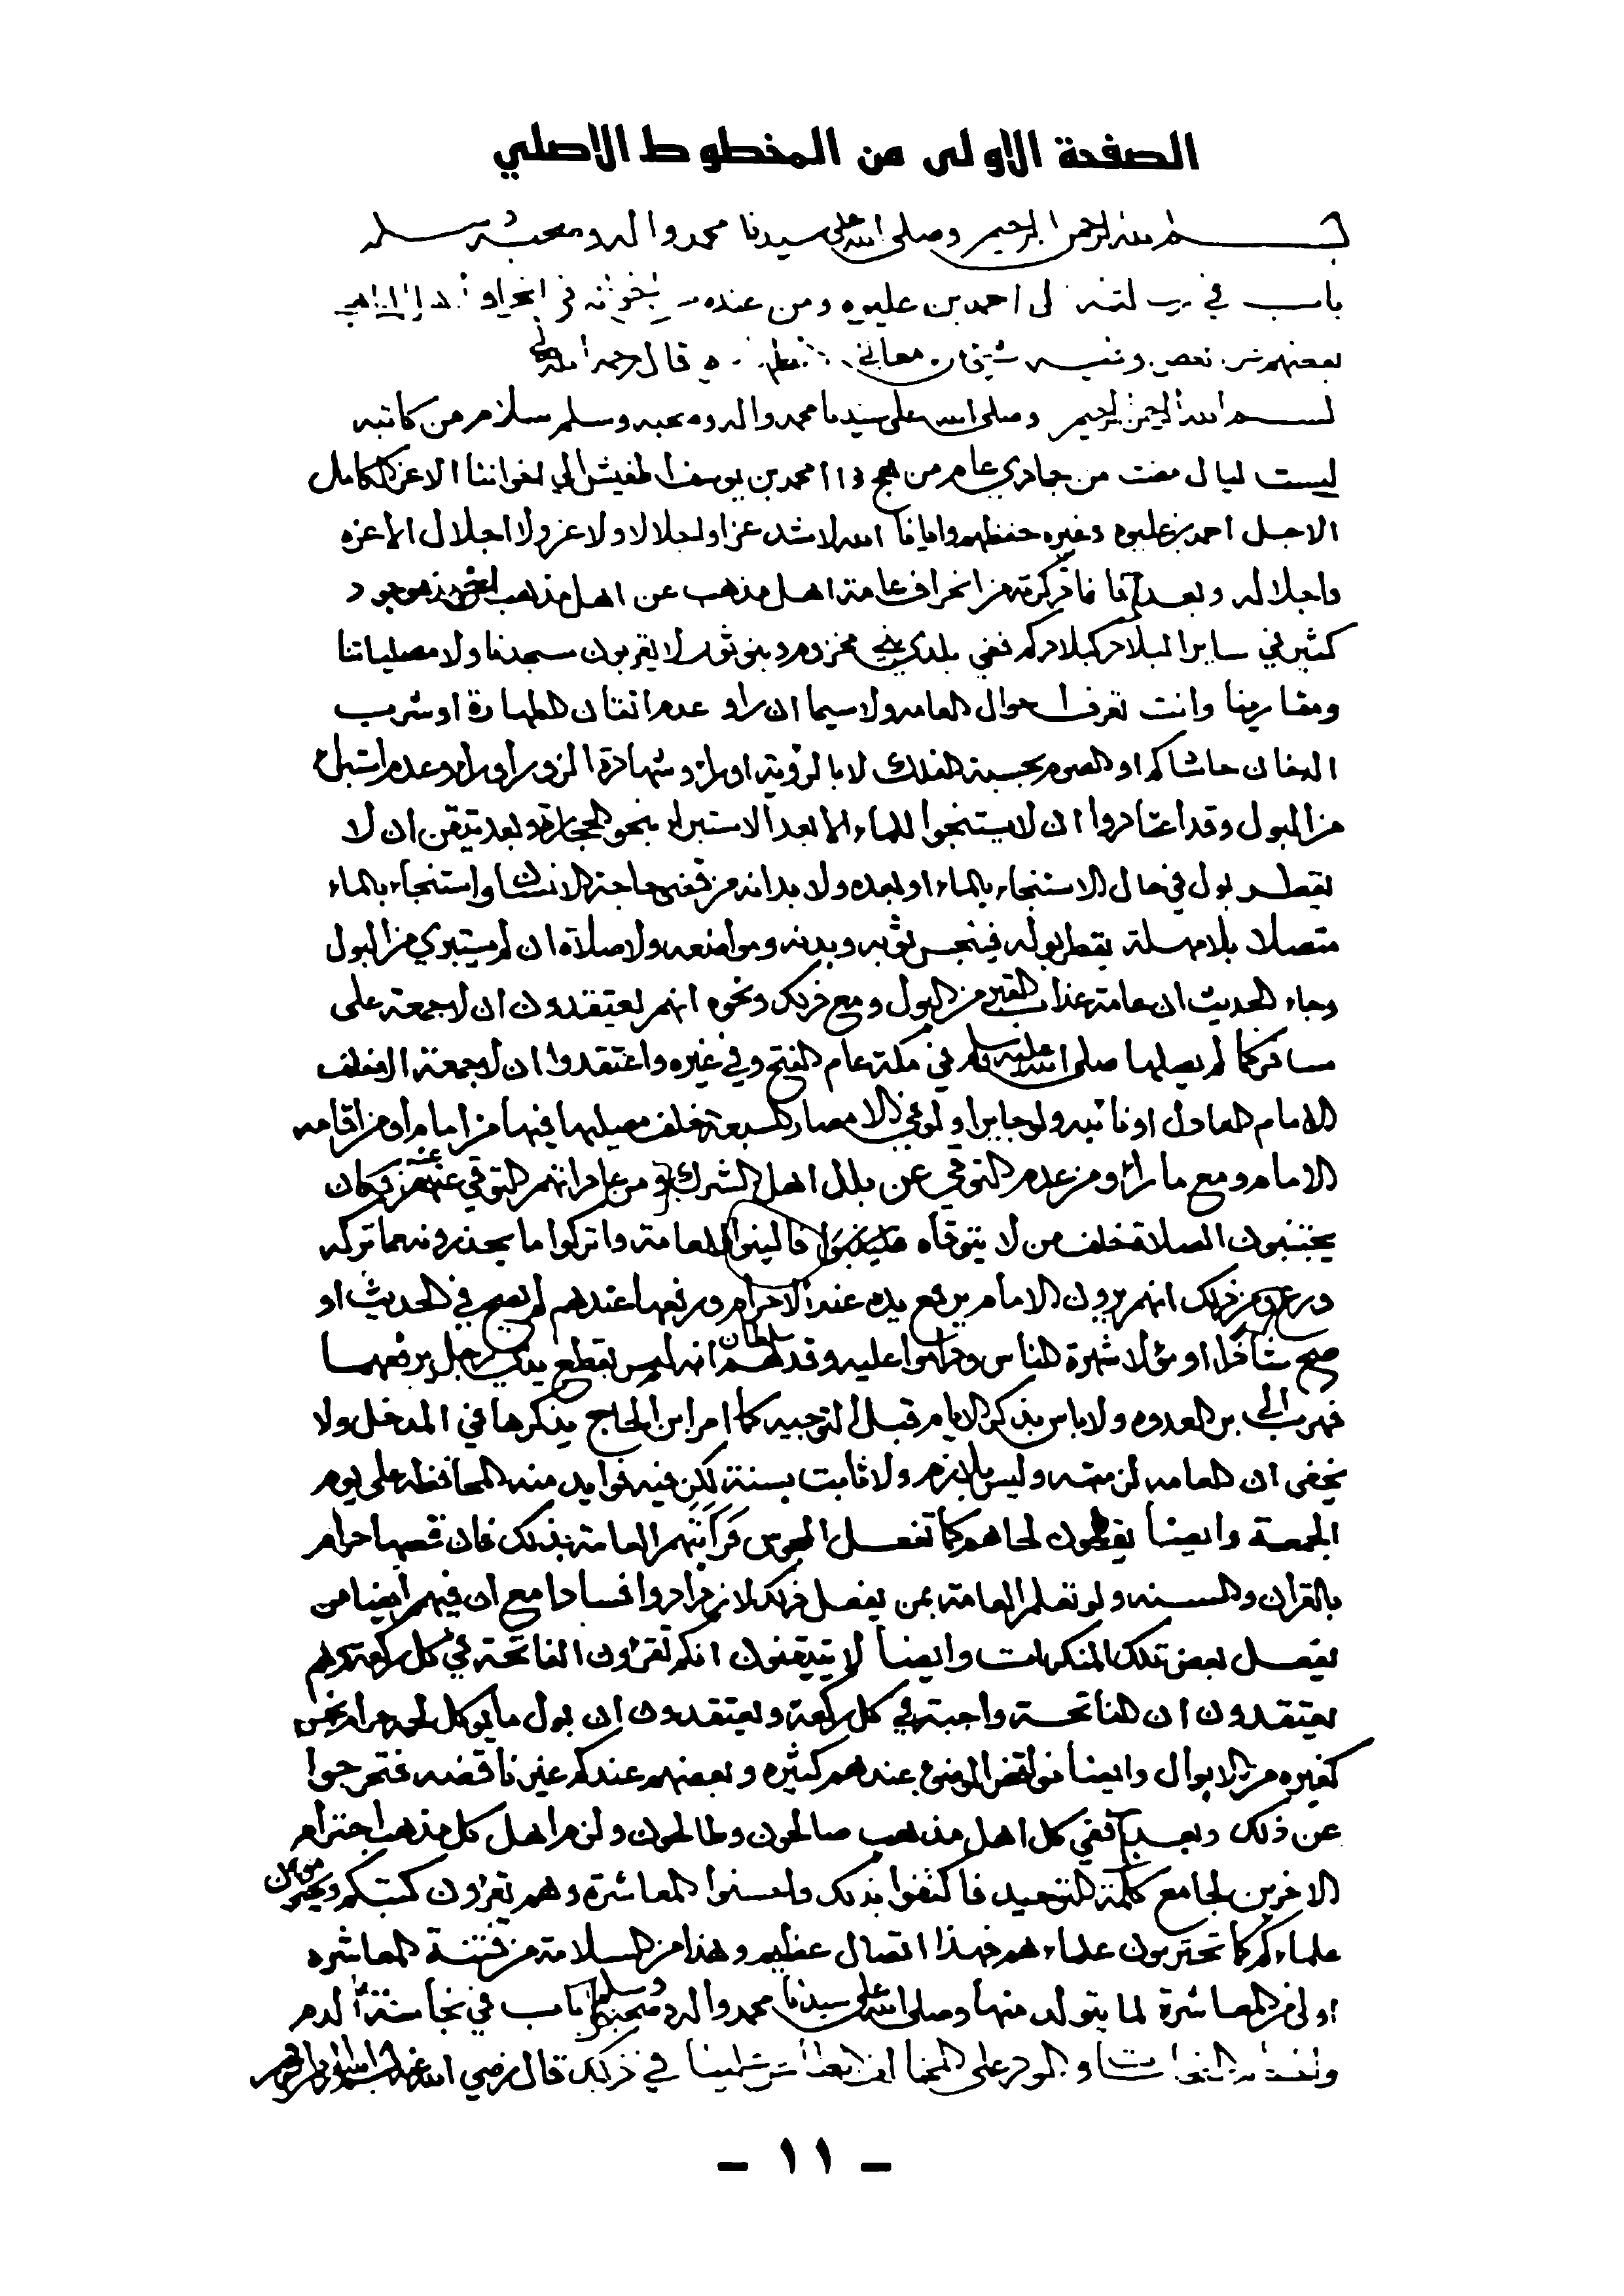 الصفحة الاولى من المخطوط الاصلي
بسم الله الرحمن الرحيم وصلى الله على سيدنا محمد واله وصحبه وسلم
باب في الى احمد بن عليوه ومن عنده في
بعضهم قال رحمه الله
بسم الله الرحمن الرحيم وصلى الله على سيدنا محمد واله وصحبه وسلم سلام من كاتبه
لست ليال مضت من جمادي عام من امحمد بن يوسف اطفيش الي اخواننا الاعز الكامل
الاجل احمد بن عليوه وغيره حفظهم وايانا الله لاشد عزا واجلالا ولا عز ولا اجلال الا عزه
واجلاله وبعد فما ذكرته من انحراف عامة اهل مذهب عن اهل مذهب موجود
كثير في ساير البلاد كبلادكم ففي بلدي بني مخزوم وبنو ثور لا يقربون مسجدنا ولا مصلياتنا
ومقابرنا وانت تعرف احوال العامه ولا سيما ان راو عدم اتقان الطهارة او شرب
الدخان حاشاكم او الصوم بحسبة الفلك لا بالرؤية اوراوا شهادة الزور اوراوا عدم استبراء
من البول وقد اعتادوا ان لا يستنجوا للماء الا بعد الاستبراء بنحو الحجارة وبعد تيقن ان لا
يقطر بول في حال الاستنجاء بالماء او بعده ولا بد انه من قضى حاجة الانسان واستنجاء بالماء
متصلا بلا مهلة يقطر بوله فينجس ثوبه وبدنه ومواضعه ولا صلاة ان لم يستبري من البول
وجاء الحديث ان عامة عذاب القبر من البول ومع ذلك ونحوه انهم يعتقدون ان لا جمعة على
مسافر كما لم يصلها صلى الله عليه وسلم في مكة عام الفتح وفي غيره واعتقدوا ان لا جمعة الا خلف
الامام العادل او نائبه ولو جايرا ولو في الامصار السبعة خلف مصليها فيها من امام او من اقامه
الامام ومع ما راو من عدم التوقي عن بلل اهل الشرك ومن عادتهم التوقي عنه فكان
يجتنبون الصلاة خلف من لا يتوقاه فالينوا للعامة واتركوا ما يحذرونه مما تركه
ورع ومن ذلك انهم يرون الامام يرفع يده عند الاحرام ورفعها عندهم لم يصح في الحديث او
صح متأخرا او مؤلا شهرة الناس وحراموا عليه وقد انه ليس بقطع يدي رجل يرفعهما
فهرب الى بر العدوه ولا باس بذكر الايام قبل التوجيه كما امر ابن الحاج يذكرها في المدخل ولا
يخفى ان العامه لزمته وليس بلازم ولا ثابت بسنة لكن فيه فوايد منه المحافظة على يوم
الجمعة وايضا يقطعون لحاهم كما تفعل المجوس فراتهم العامة بذلك فان قصها حرام
بالقران والسنه ولو تعلم العامة بمن يفعل ذلك لازدادوا فسادا مع ان فيهم ايضا من
يفعل بعض تلك المنكرات وايضا لا يتيقنون انكم تقراون الفاتحة في كل ركعة وهم
يعتقدون ان الفاتحة واجبة في كل ركعة ويعتقدون ان بول ما يوكل لحمه حرام نجس
كغيره من الابوال وايضا نواقض الوضوء عندهم كثيره وبعضهم عندكم غير ناقضه فتحرجوا
عن ذلك وبعد ففي كل اهل مذهب صالحون وطالحون ولزم اهل كل مذهب احترام
الاخرين لجامع كلمة التوحيد فاكتفوا بذلك واحسنوا المعاشرة وهم يقراون كتبكم ويحترمون
علماءكم كما تحترمون علماءهم فهذا اتصال عظيم وهذا من السلامة من فتنة المعاشره
اولى من المعاشرة لما يتولد منها وصلى الله على سيدنا محمد واله وصحبه وسلم باب في نجاسة الدم
في ذلك قال رضي الله عنه
- ١١ -